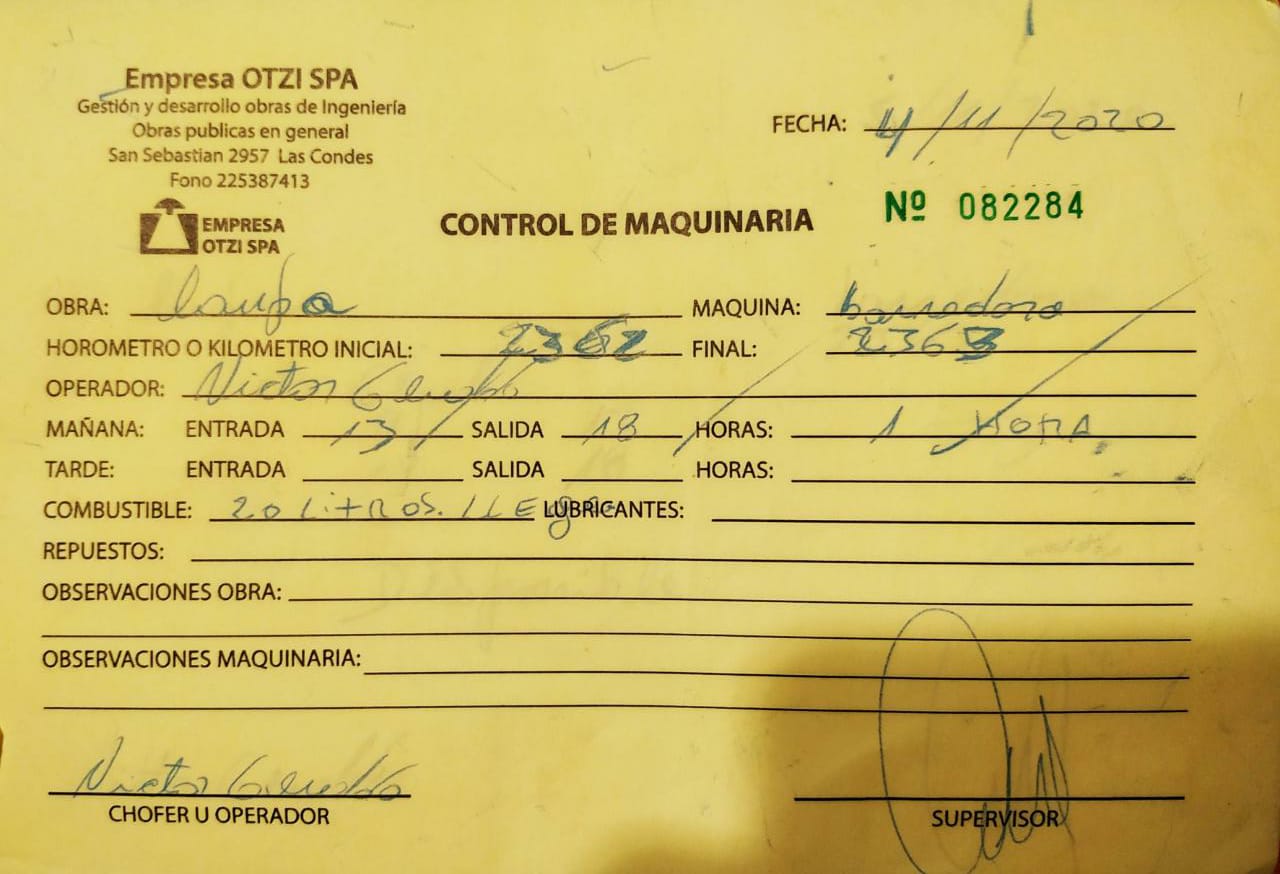 Empresa OTZI SPA
Gestión y desarrollo obras de Ingeniería
Obras publicas en general
San Sebastian 2957 Las Condes
Fono 225387413
EMPRESA
OTZI SPA
FECHA: 4/11/2020
Nº 082284
CONTROL DE MAQUINARIA
OBRA: Lampa MAQUINA: barredora
HOROMETRO O KILOMETRO INICIAL: 2362 FINAL: 2363
OPERADOR: Victor
MAÑANA: ENTRADA 13 SALIDA 18 HORAS: 1 HORA
TARDE: ENTRADA SALIDA HORAS:
COMBUSTIBLE: 20 LitROS. LUBRICANTES:
REPUESTOS:
OBSERVACIONES OBRA:
OBSERVACIONES MAQUINARIA:
Victor
CHOFER U OPERADOR
SUPERVISOR